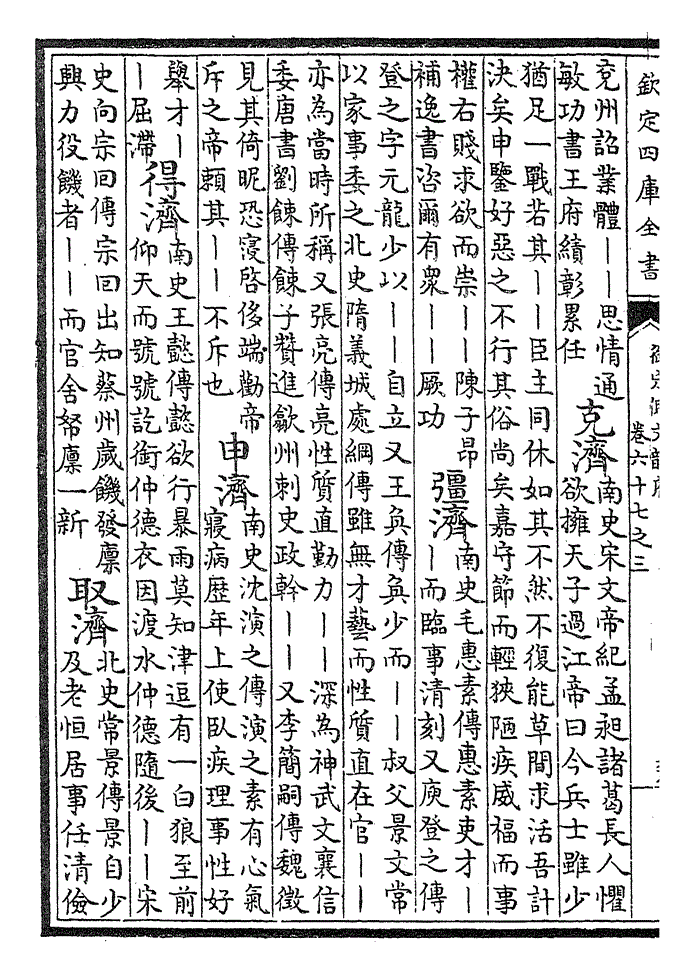 欽定四庫全書
卷六十七之三
兗州詔業體——思情通
敏功書王府績彰累任
克濟
南史宋文帝紀孟昶諸葛長人懼
欲擁天子過江帝曰今兵士雖少
猶足一戰若其——臣主同休如其不然不復能草間求活吾計
決矣申鑒好惡之不行其俗尚矣嘉守節而輕狹陋疾威福而事
權右賤求欲而崇——陳子昂
補逸書咨爾有衆——厥功
彊濟
南史毛惠素傳惠素吏才—
—而臨事清刻又庾登之傳
登之字元龍少以——自立又王奐傳奐少而——叔父景文常
以家事委之北史隋義城處綱傳雖無才藝而性質直在官——
亦為當時所稱又張亮傳亮性質直勤力——深為神武文襄信
委唐書劉餗傳餗子贊進歙州刺史政幹——又李簡嗣傳魏徵
見其倚昵恐寖啓侈端勸帝
斥之帝頼其——不斥也
申濟
南史沈演之傳演之素有心氣
寢病歴年上使臥疾理事性好
舉才—
—屈滯
得濟
南史王懿傳懿欲行暴雨莫知津逗有一白狼至前
仰天而號號訖銜仲德衣因渡水仲德隨後——宋
史向宗回傳宗回出知蔡州歲饑發廩
興力役饑者——而官舍帑廩一新
取濟
北史常景傳景自少
及老恒居事任清儉